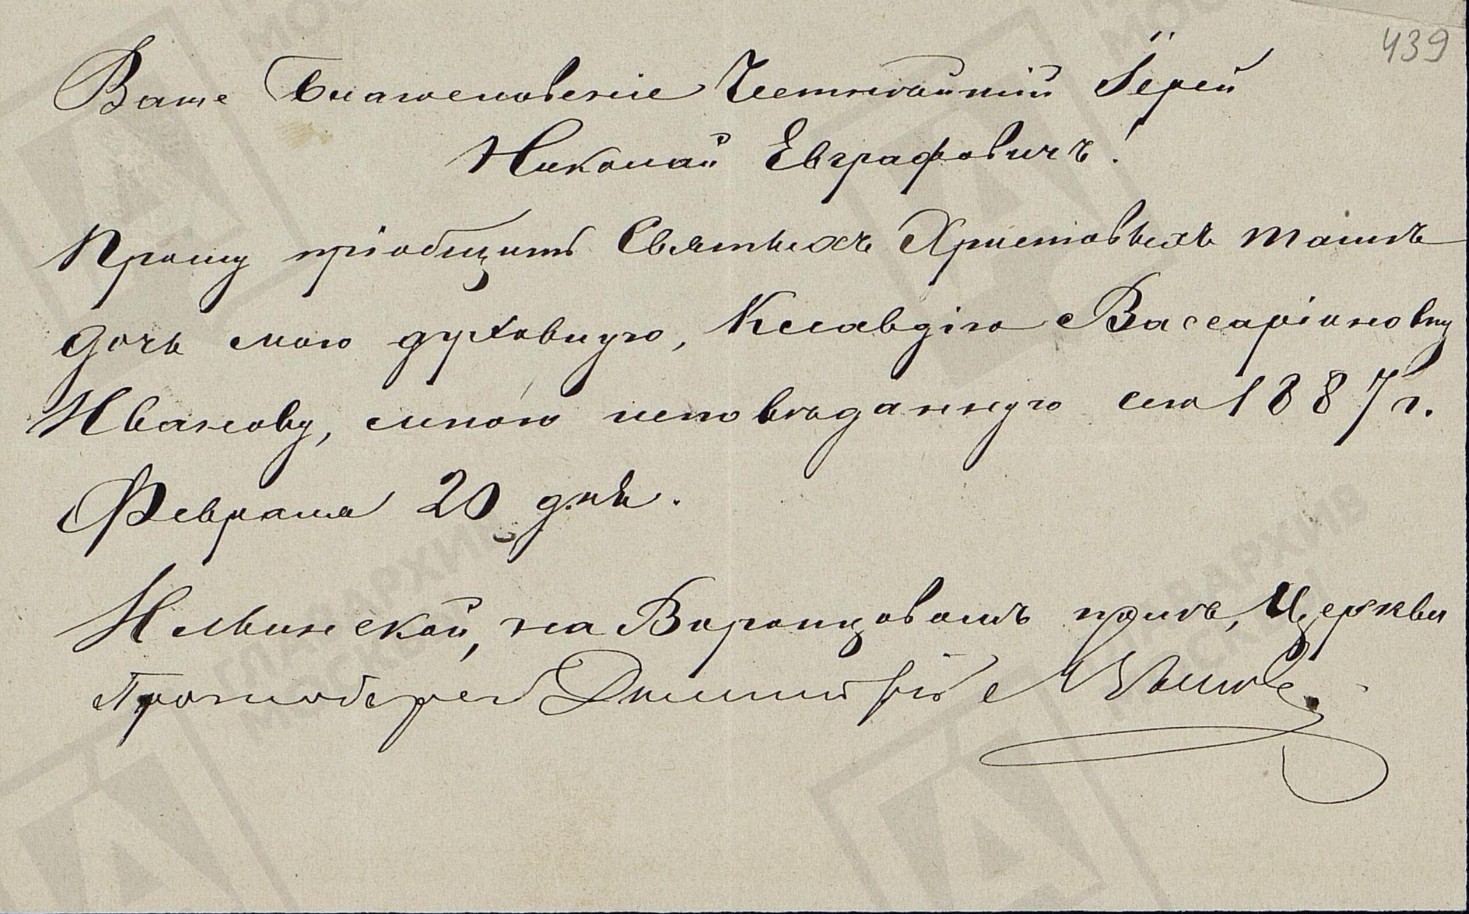 439
Ваше Благословеніе Честнѣйшій Іерей
Николай Евграфовичъ!
Прошу пріобщить Святыхъ Христовыхъ таинъ
дочь мою духовную, Клавдію Вассаріоновну
Иванову, мною исповѣданную сего 1887 г.
Февраля 20 дня.
Ильинской, на Воронцовомъ полѣ, Церкви
Протоіерей Димитрій
ГЛАВАРХИВ
МОСКВЫ